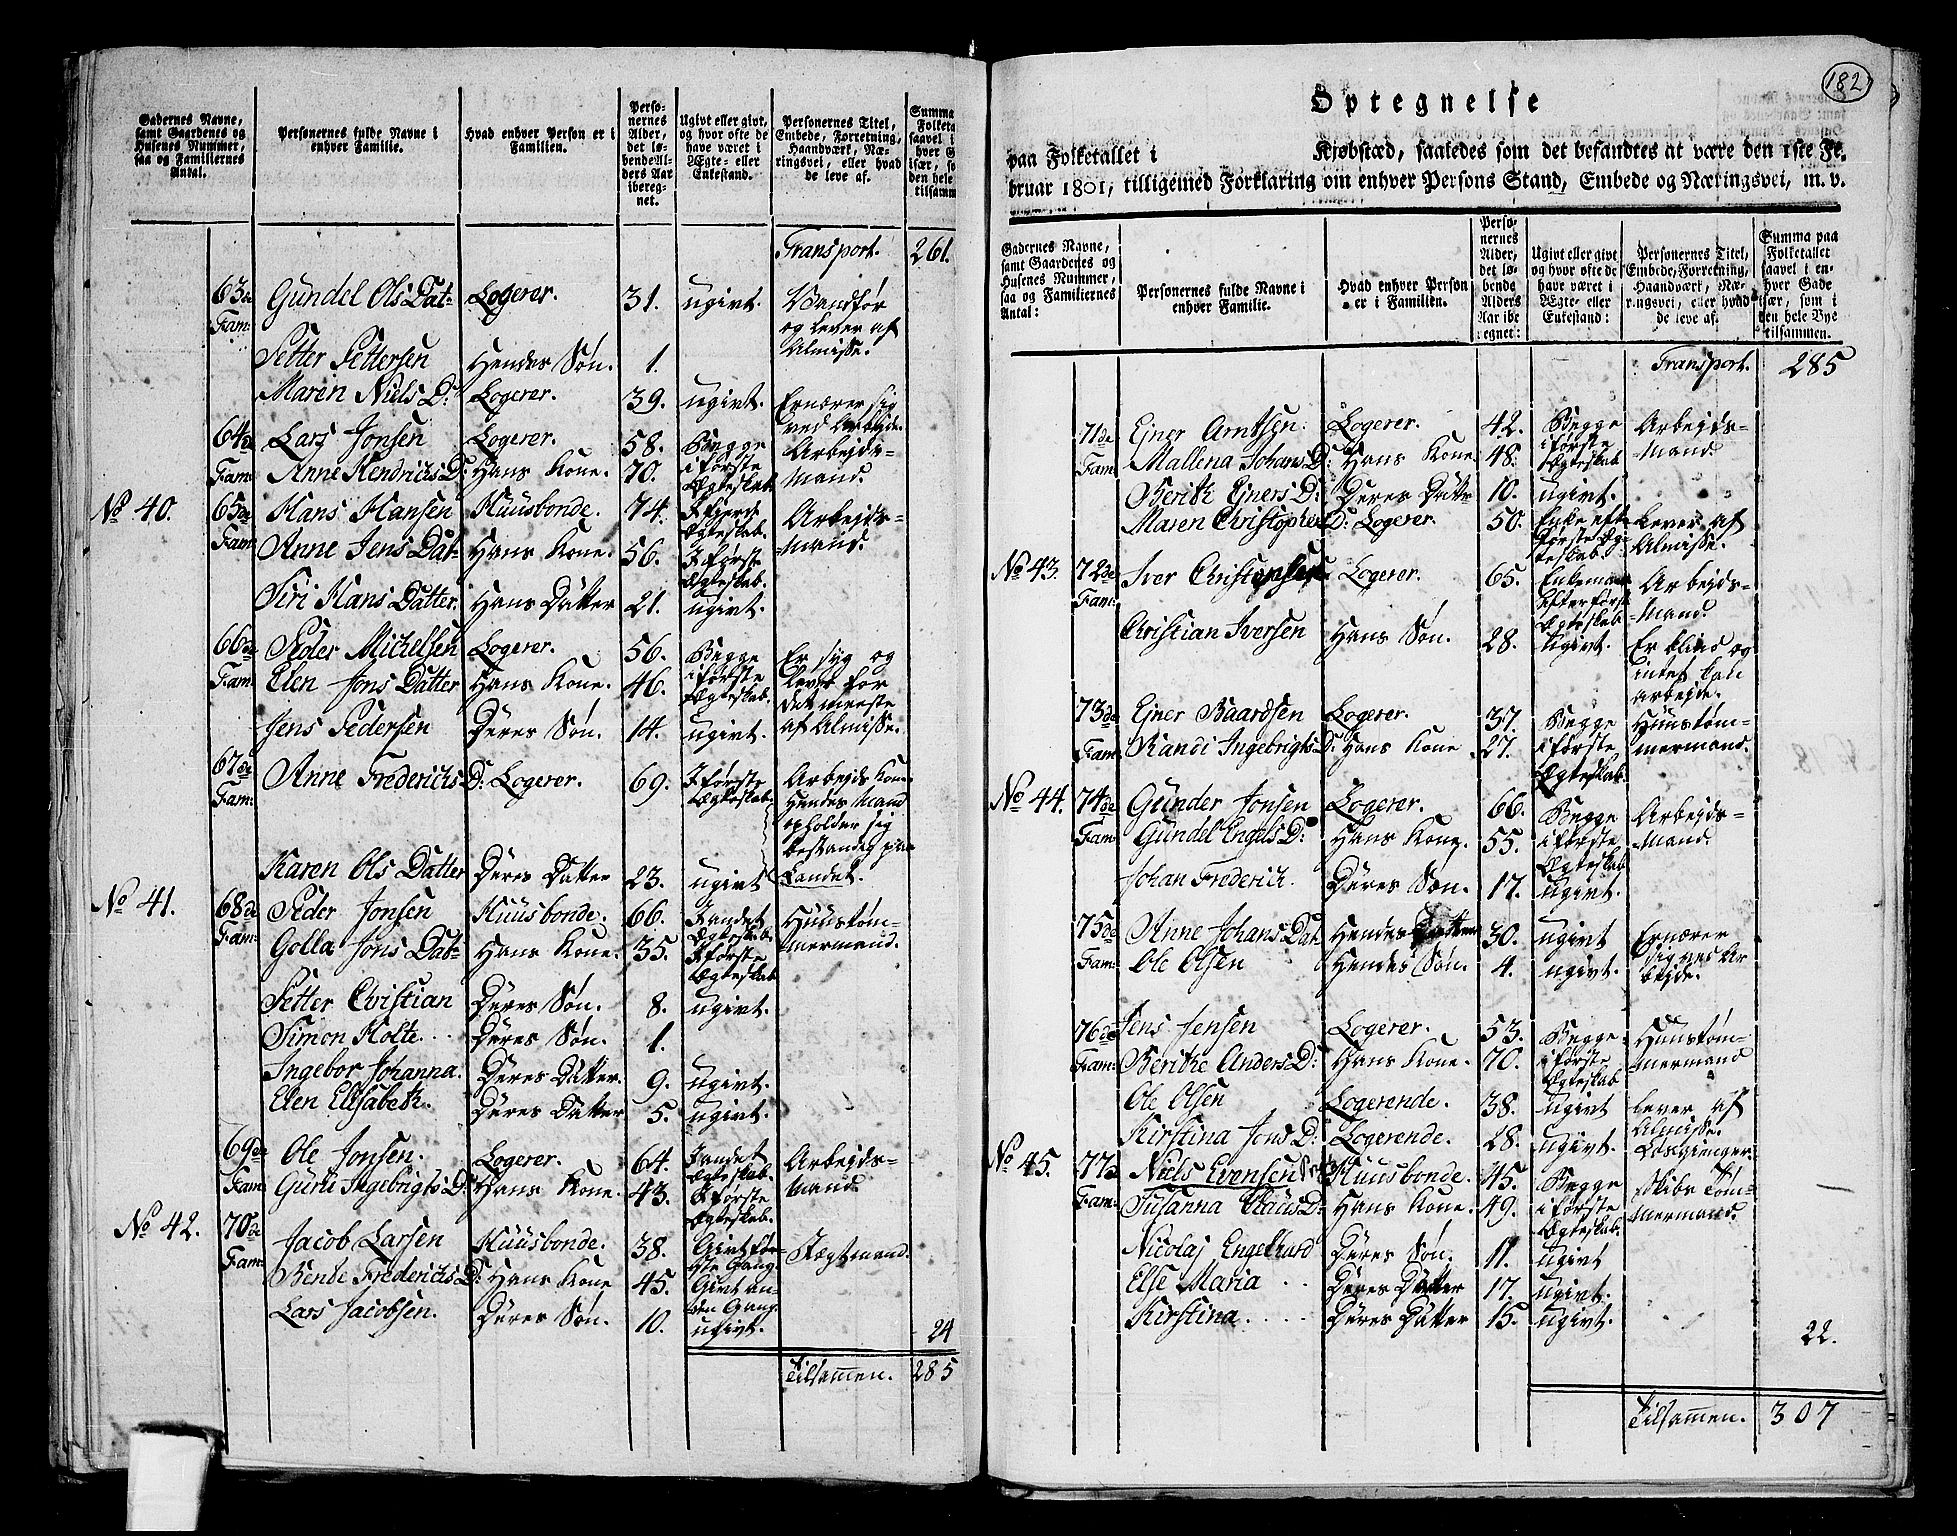 Gadernes Navne, samt Gaardenes og Husenes Nummer, saa og Familiernes Antal.
Personernes fulde Navne i enhver Familie.
Hvad enhver Person er i Familien.
Personernes Alder, det løbende Alders Aar iberegnet.
Ugivt eller givt, og hvor ofte de have været i Ægte- eller Enkestand.
Personernes Titel, Embede, Forretning, Haandværk, Næringsvei, eller hvad de leve af.
Transport. 261.
63de Fam: Gundel Ols Dat- Logerer. 31. ugivt. Vandfør og lever af Almisse.
Petter Pettersen Hendes Søn. 1.
Maren Niels D: Logerer. 39. ugivt. Ernærer sig ved Arbejde.
64de Fam: Lars Jonsen Logerer. 58. Begge i første Ægteskab Arbejds-mand.
Anne Hendrichs D: Hans Kone. 70.
No 40. 65de Fam: Hans Hansen Huusbonde. 74. I fjerde Ægteskab. Arbejds-mand.
Anne Jens Dat- Hans Kone. 56. I første Ægteskab.
Siri Hans Datter. Hans Datter 21. ugivt.
66de Fam: Peder Michelsen Logerer. 56. Begge i første Ægteskab. Er syg og lever for det meeste af Almisse.
Elen Jons Datter Hans Kone. 46.
Jens Pedersen Deres Søn. 14. ugivt.
67de Fam: Anne Frederichs D: Logerer. 69. I første Ægteskab. Arbejds Kone Hendes Mand opholder sig bestandig paa Landet.
Karen Ols Datter Deres Datter 23. ugivt
No 41. 68de Fam: Peder Jonsen Huusbonde. 66. I andet Ægteskab. Huustøm-mermand.
Golla Jons Dat- Hans Kone. 35. I første Ægteskab
Petter Christian Deres Søn. 8. ugivt.
Simon Holte.. Deres Søn. 1.
Ingebor Johanna. Deres Datter. 9. ugivt.
Elen Elisabeth. Deres Datter 5. ugivt.
69de Fam: Ole Jonsen. Logerer. 64. I andet Ægteskab. Arbejds-mand
Guri Ingebrigts D: Hans Kone. 43. I første Ægteskab.
No 42. 70de Fam: Jacob Larsen Huusbonde. 38. Givt før-ste Gang. Jægtmand.
Bende Frederichs D: Hans Kone 45. Givt an-den Gang.
Lars Jacobsen. Deres Søn. 10. ugivt.
24
Tilsammen. 285
182
Optegnelse
paa Folketallet i Kjøbstæd, saaledes som det befandtes at være den 1ste Fe-
bruar 1801, tilligemed Forklaring om enhver Persons Stand, Embede og Næringsvei, m. v.
Gadernes Navne, samt Gaardenes og Husenes Nummer, saa og Familiernes Antal:
Personernes fulde Navne i enhver Familie.
Hvad enhver Person er i Familien.
Personernes Alder, det løbende Alders Aar iberegnet:
Ugivt eller givt og hvor ofte de have været i Ægte- eller Enkestand:
Personernes Titel, Embede, Forretning, Haandværk, Næringsvei, eller hvad de leve af.
Summa paa Folketallet saavel i enhver Gade især, som i den hele Bye tilsammen.
Transport. 285
71de Fam: Ejner Arntsen: Logerer. 42. Begge i første Ægteskab Arbejds-mand
Mallena Johans D: Hans Kone 48.
Berith Ejners D: Deres Datte 10. ugivt.
Maren Christophers D: Logerer. 50. Enke eft. første Æg-teskab. Lever af Almisse.
No 43. 72de Fam: Iver Christophersen Logerer. 65. Enkemand Efter første Ægteskab Arbejds-mand.
Christian Iversen Hans Søn. 28. Ugivt. Er blind og intet kan arbejde.
73de Fam: Ejner Baardsen Logerer. 37. Begge i første Ægteskab. Huustøm-mermand.
Randi Ingebrigts D: Hans Kone 27.
No 44. 74de Fam: Gunder Jonsen Logerer. 66. Begge i første Ægteskab Arbejds-mand.
Gundel Engels D: Hans Kone. 55.
Johan Frederich. Deres Søn. 17. ugivt.
75de Fam: Anne Johans Dat. Hendes Datter 30. ugivt Ernærer sig ved Ar bejde.
Ole Olsen Hendes Søn. 4. ugivt.
76de Fam: Jens Jensen Logerer. 53. Begge i første Ægteskab Huustøm-mermand
Berithe Anders D: Hans Kone. 70.
Ole Olsen Logerende. 38. ugivt Lever af Almisse.
Kirstina Jons D: Logerende. 28. ugivt. Løsgienger
No 45. 77de Fam: Niels Evensen Huusbonde. 45. Begge i første Ægteskab. Skibs Tøm-mermand.
Susanna Claus D: Hans Kone. 49.
Nicolaj Engelhard Deres Søn. 11. ugivt
Else Maria .. Deres Datter 17. ugivt.
Kirstina.... Deres Datter 15. ugivt.
22.
Tilsammen. 307